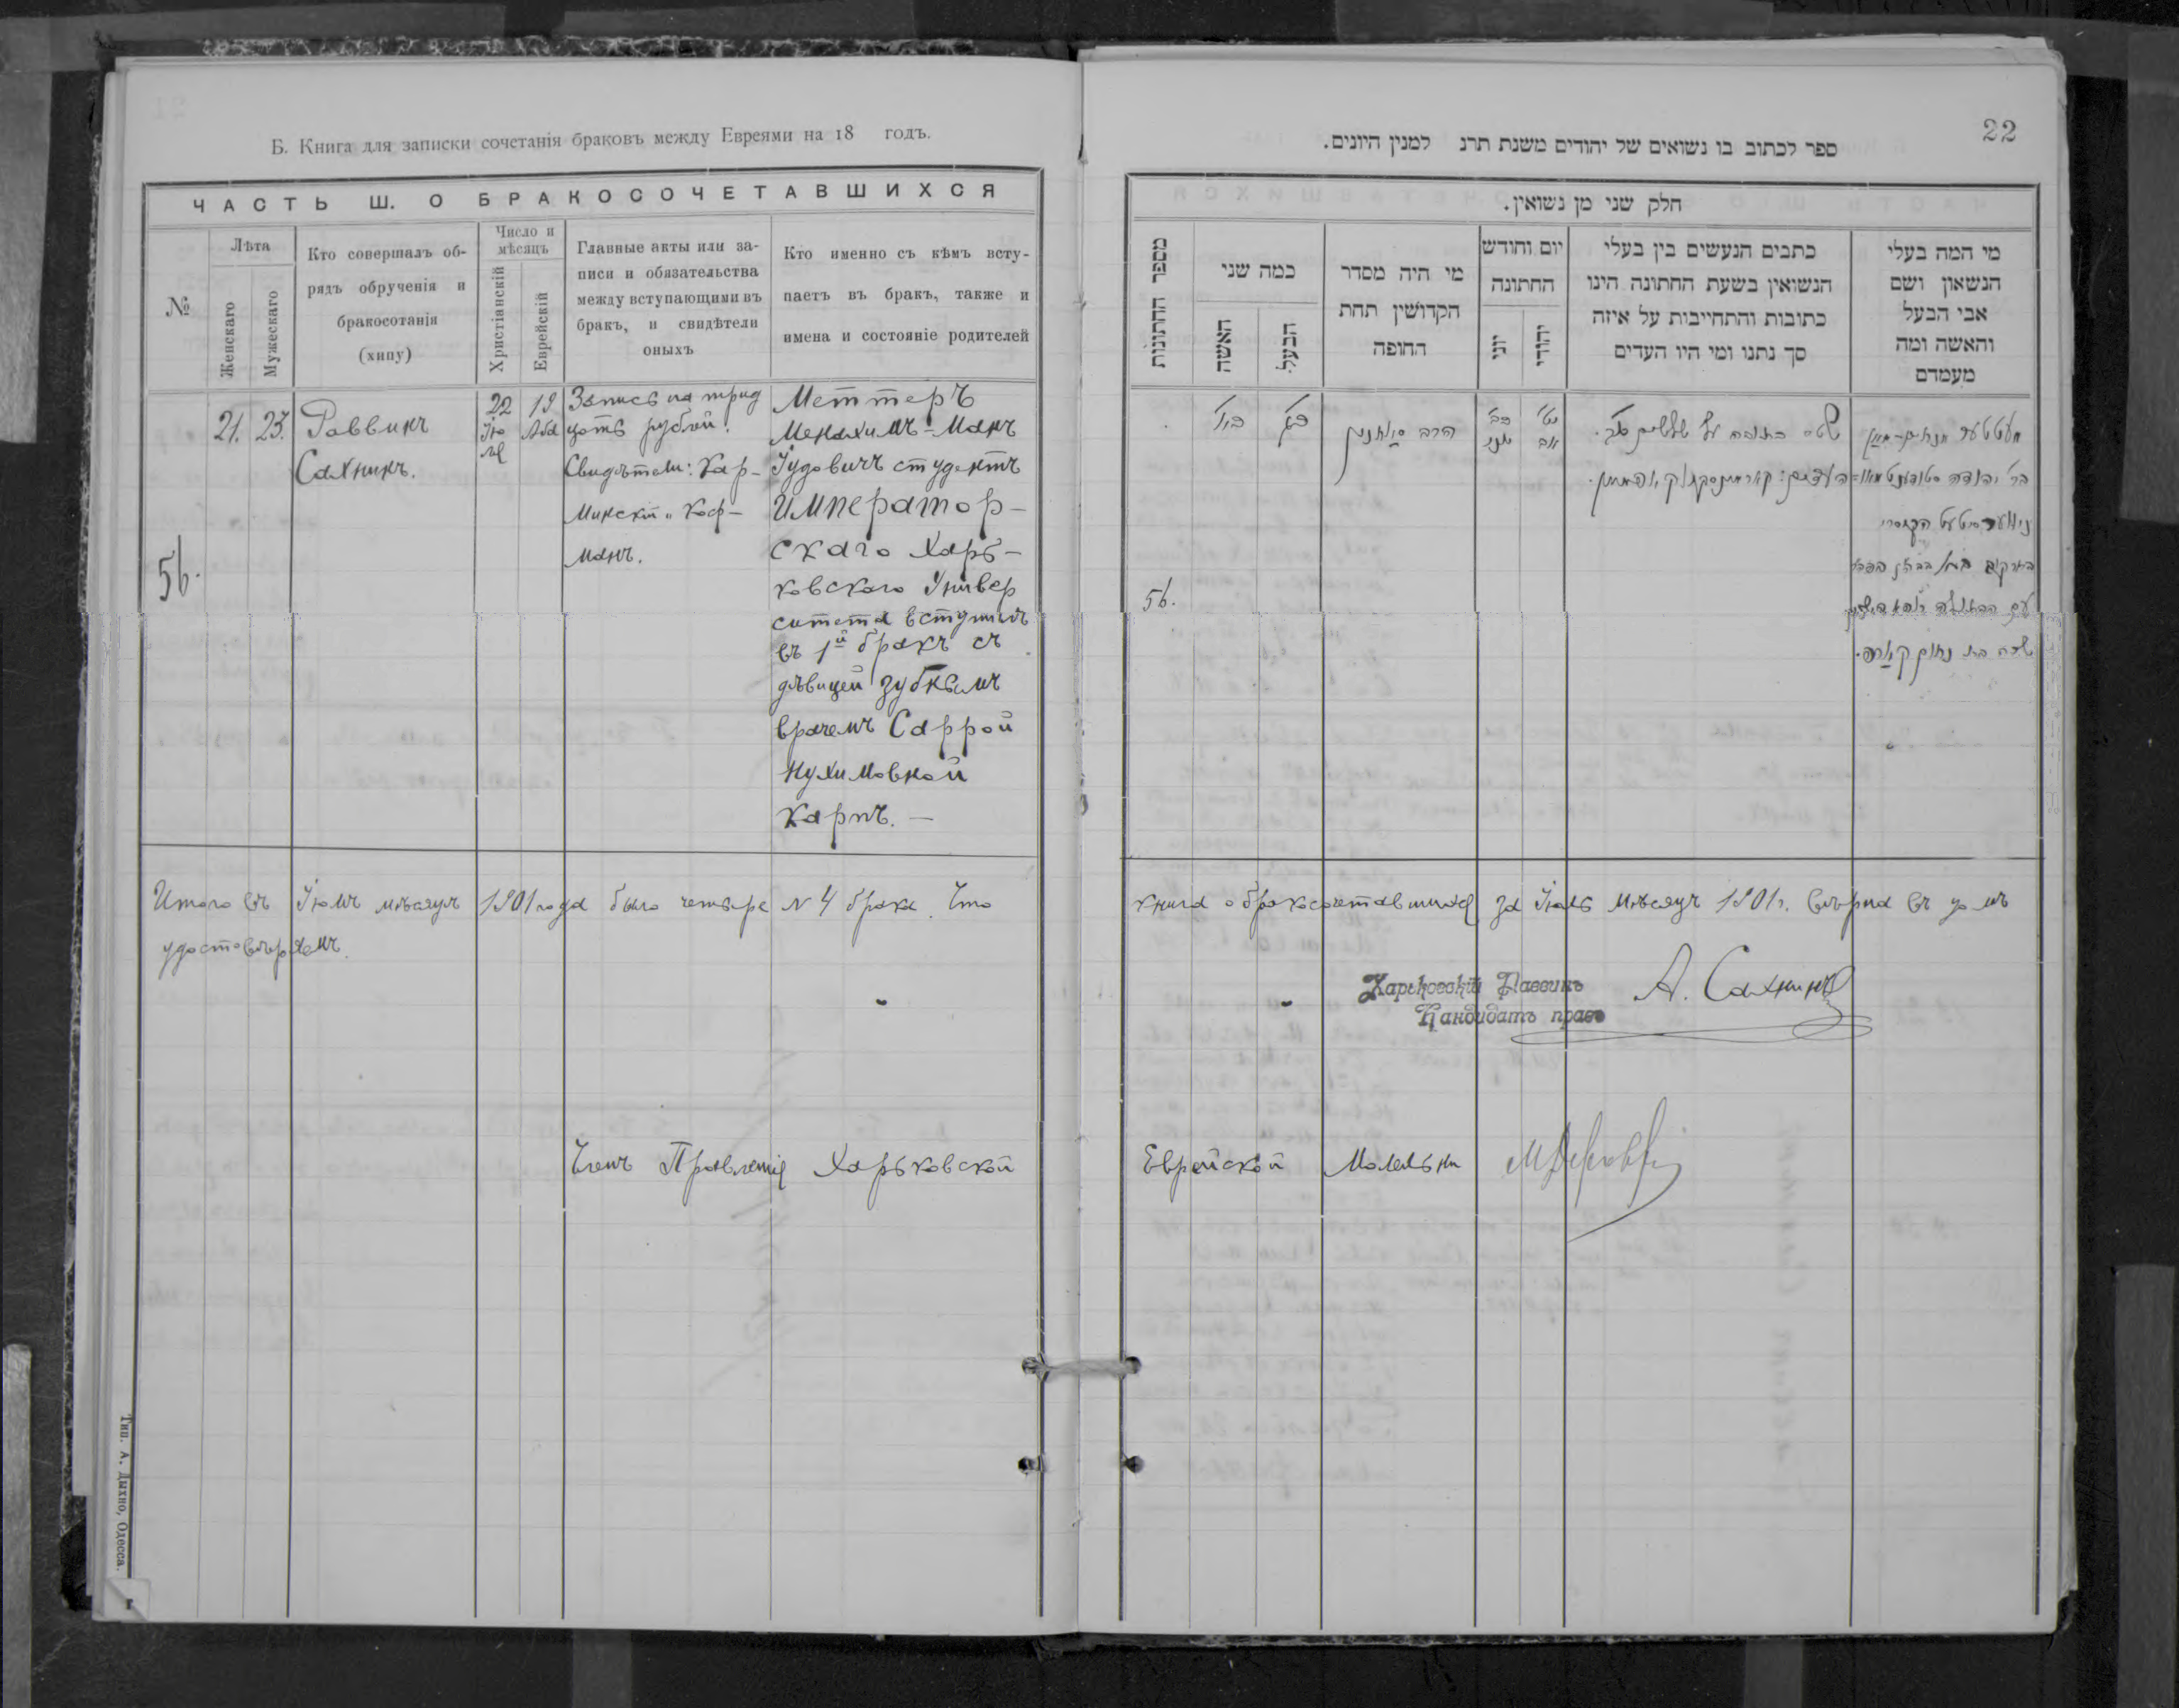 Б. Книга для записки сочетанія браковъ между Евреями на 18 годъ.
ЧАСТЬ Ш. О БРАКОСОЧЕТАВШИХСЯ
№
Лѣта
Женскаго
Мужескаго
Кто совершалъ об-
рядъ обрученія и
бракосотанія
(хипу)
Число и
мѣсяцъ
Христіанскій
Еврейскій
Главные акты или за-
писи и обязательства
между вступающими въ
бракъ, и свидѣтели
оныхъ
Кто именно съ кѣмъ всту-
паетъ въ бракъ, также и
имена и состояніе родителей
56.
21.
23.
Раввинъ
Сахнинъ.
22
Iю
ля
19
Аба
Запись на трид
цать рублей.
Свидѣтели: Кар-
минскій и Коф-
манъ.
Меттеръ
Менахимъ-Манъ
Іудовичъ студентъ
Император-
скаго Харь-
ковскаго Универ
ситета вступилъ
въ 1й бракъ съ
дѣвицей зубнымъ
врачемъ Саррой
Нухимовной
Карпъ. —
Итого въ Іюлѣ мѣсяцѣ 1901 года было четыре N 4 брака. Что
удостовѣряемъ.
Членъ Правленія Харьковской
Тип. А. Дыхно, Одесса.
22
ספר לכתוב בו נשואים של יהודים משנת תרנ למנין היונים.
חלק שני מן נשואין.
מספר החתונות
כמה שני
האשה
הבעל
מי היה מסדר
הקדושין תחת
החופה
יום וחודש
החתונה
יוני
יהודי
כתבים הנעשים בין בעלי
הנשואין בשעת החתונה הינו
כתובות והתחייבות על איזה
סך נתנו ומי היו העדים
מי המה בעלי
הנשאון ושם
אבי הבעל
והאשה ומה
מעמדם
56.
הרב סאחנין
מעטטער מנחים-מאן
בר' יהודה סטודענט
שרה בת נחום קארפ.
книга о бракосочетавшихся за Іюль мѣсяцъ 1901 г. вѣрна въ томъ
Харьковскій Раввинъ
Кандидатъ правъ
А. Сахнинъ
Еврейской Молельни